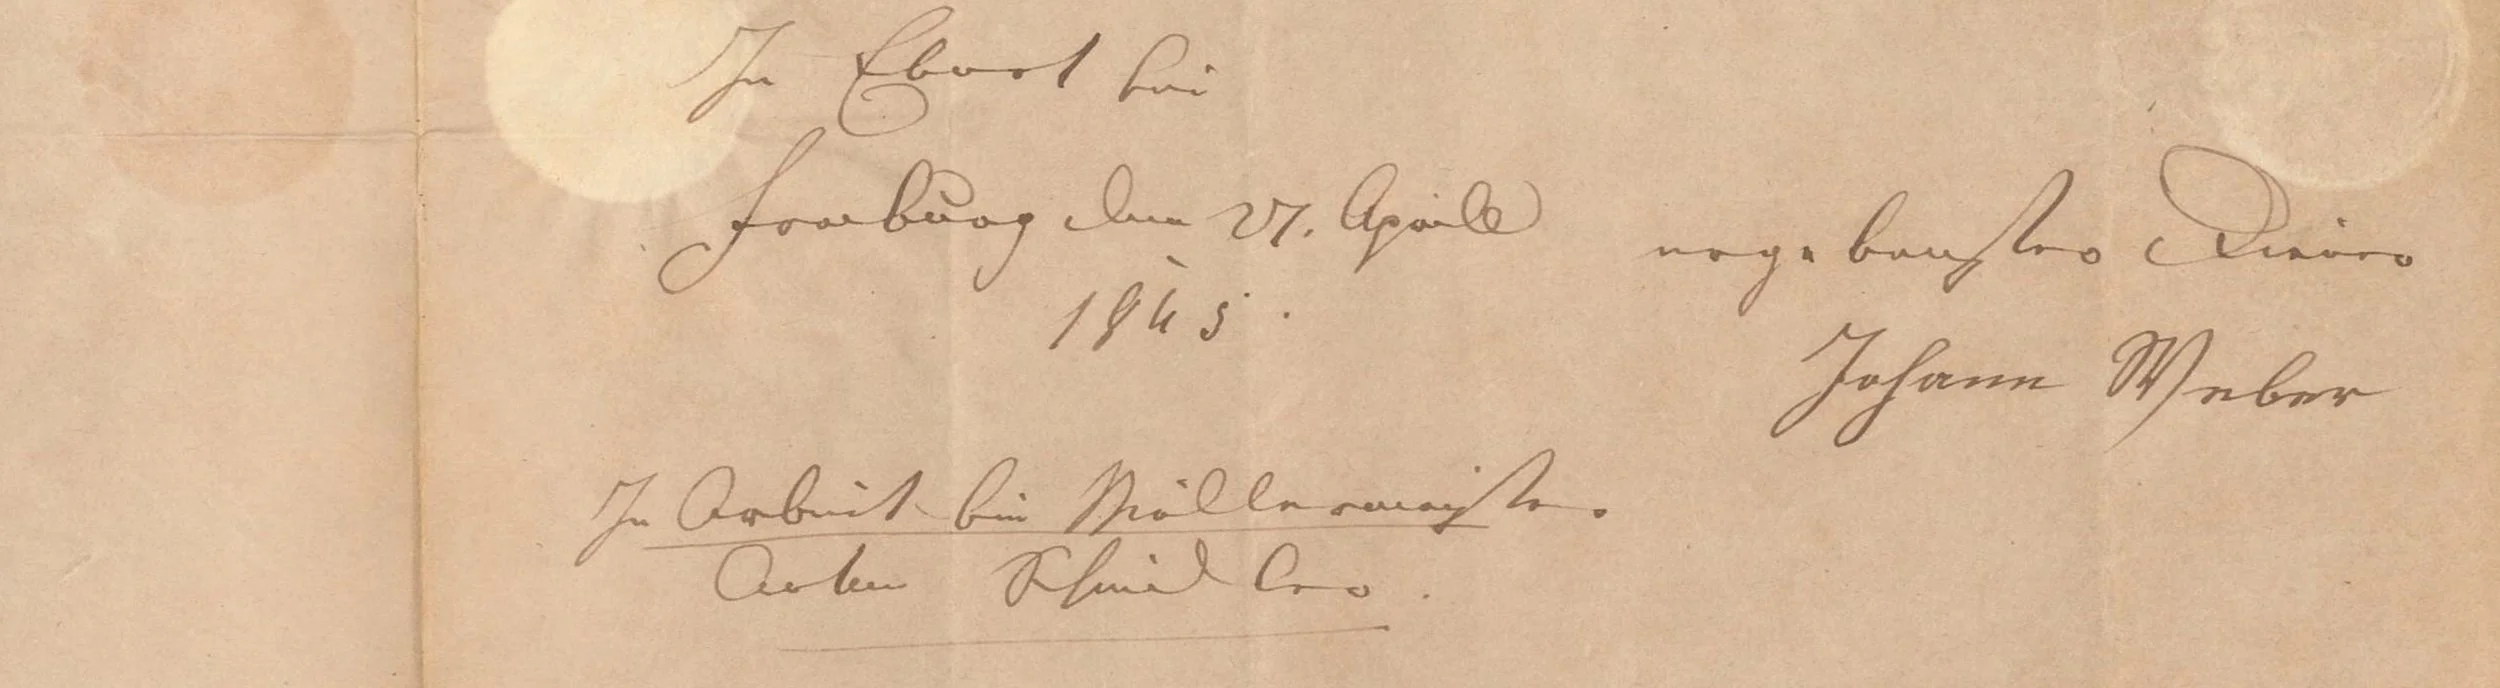 In Ebort bei
Freiburg den 27. Aprill
1845.
ergebenster Diener
Johann Weber
In Arbeit bei Müllermeister